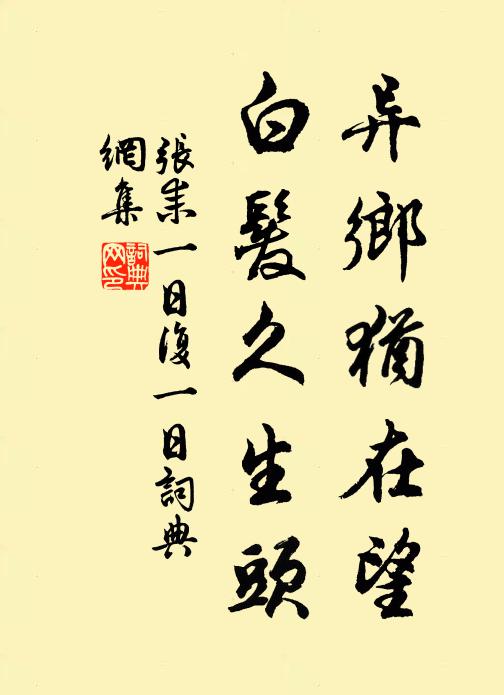 异鄉猶在望
白髮久生頭
張耒一日復一日詞典
網集
詞典
网印